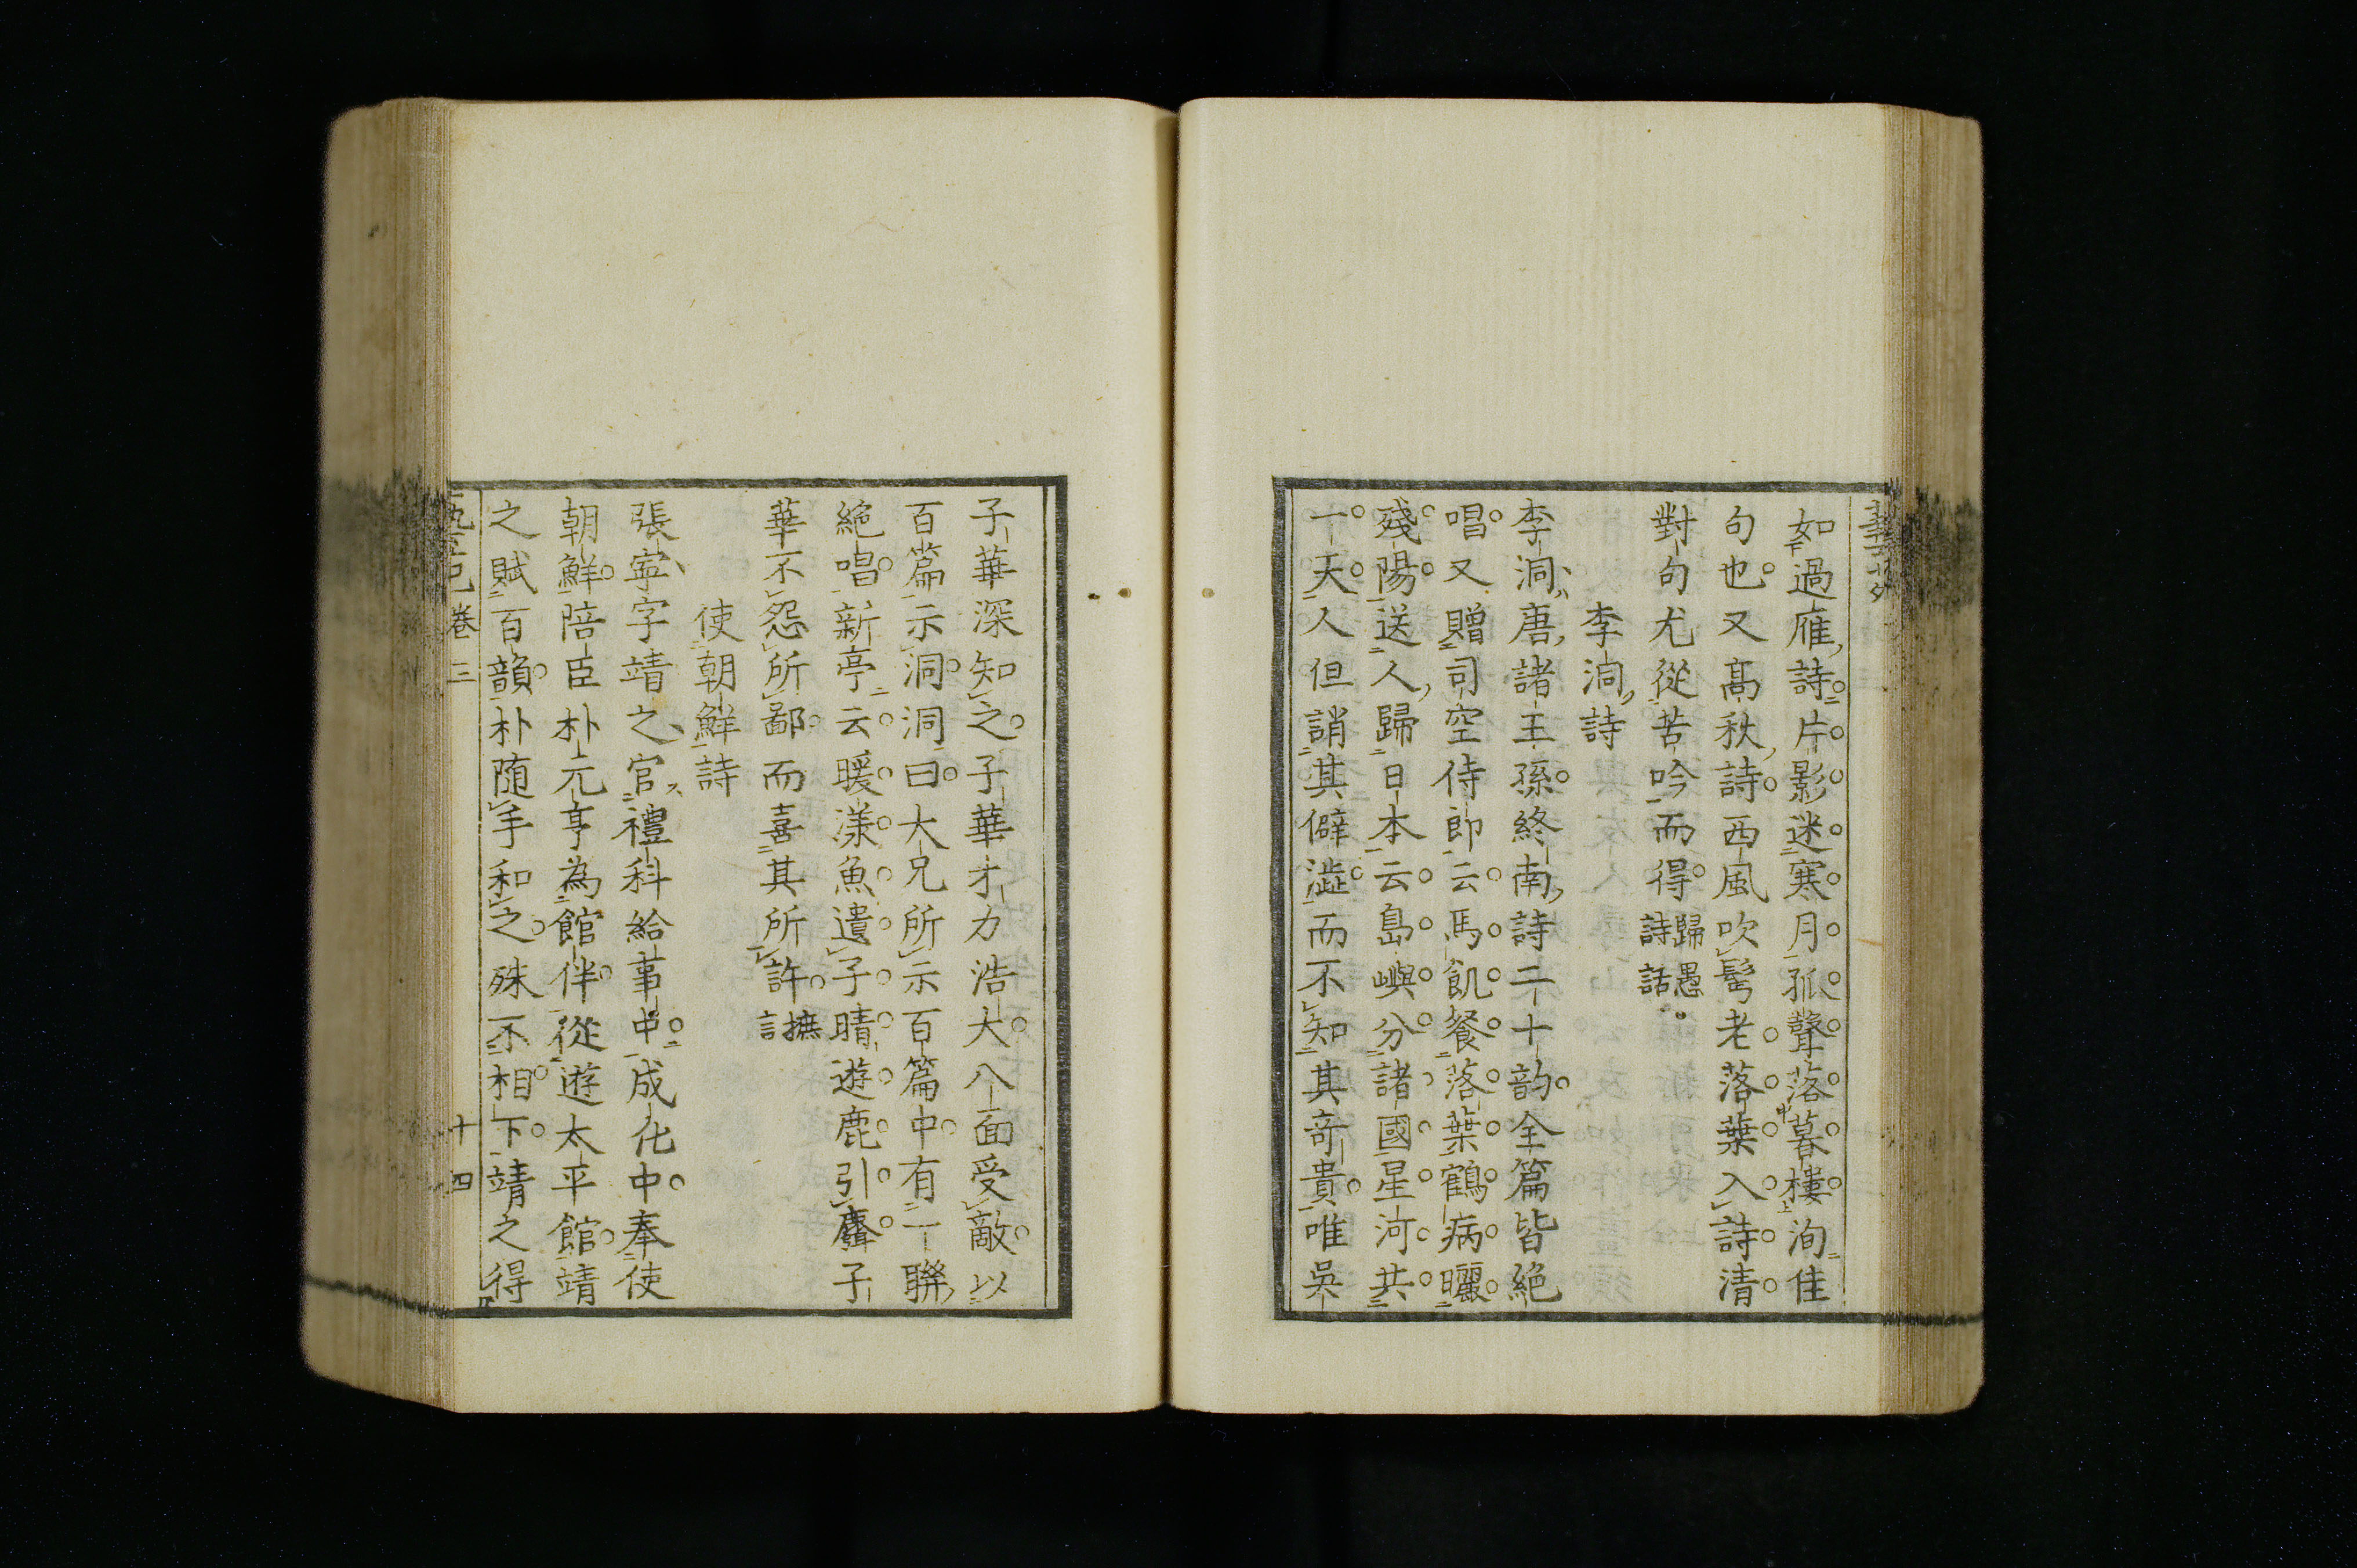 如過雁詩片影迷寒月孤聲落暮樓洵佳
句也又高秋詩西風吹髩老落葉入詩清
對句尤從苦吟而得歸愚詩話
李洞詩
李洞唐諸王孫終南詩二十韵全篇皆絕
唱又贈司空侍郎云馬飢餐落葉鶴病曬
殘陽送人歸日本云島嶼分諸國星河共
一天人但誚其僻澁而不知其奇貴唯吳
子華深知之子華才力浩大八面受敵以
百篇示洞洞曰大兄所示百篇中有一聯
絕唱新亭云暖漾魚遺子晴遊鹿引麛子
華不怨所鄙而喜其所許摭言
使朝鮮詩
張寧字靖之官禮科給事中成化中奉使
朝鮮陪臣朴元亨為館伴從遊太平館靖
之賦百韻朴随手和之殊不相下靖之得
卷三 十四